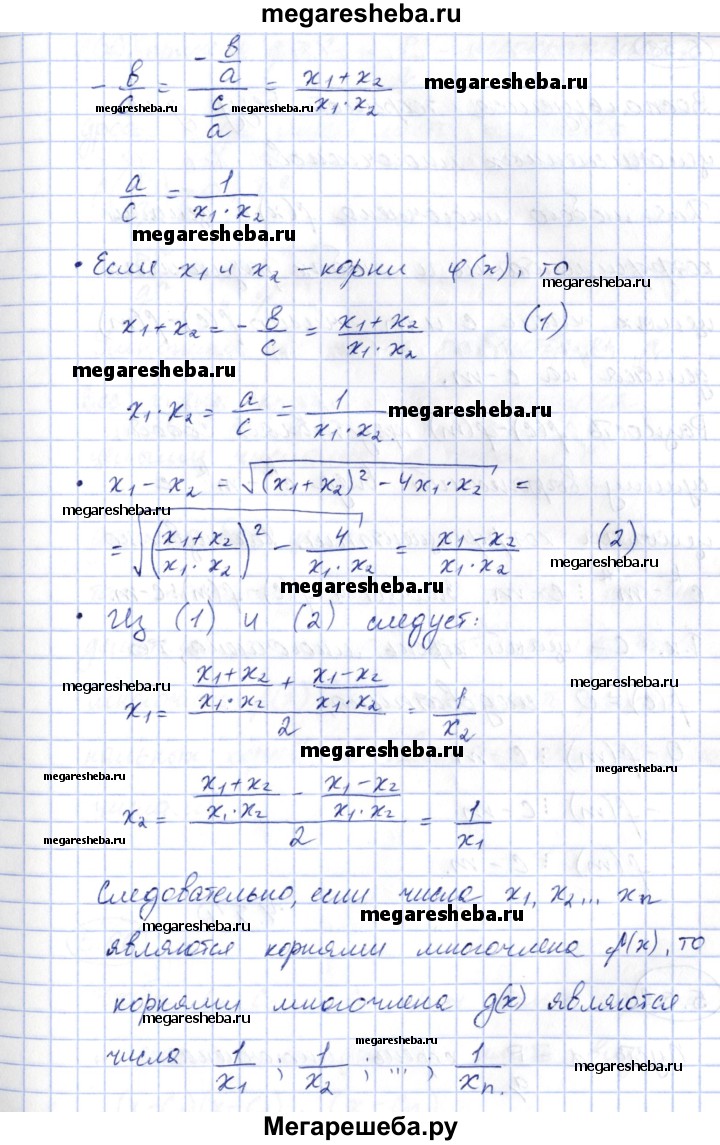 megaresheba.ru
- в/с = (- в/a)/(с/a) = (x₁+x₂)/(x₁·x₂) megaresheba.ru
megaresheba.ru megaresheba.ru megaresheba.ru
a/с = 1/(x₁·x₂)
megaresheba.ru
• Если x₁ и x₂ – корни φ(x), то
megaresheba.ru
x₁+x₂ = - в/с = (x₁+x₂)/(x₁·x₂) (1)
megaresheba.ru
x₁·x₂ = a/с = 1/(x₁·x₂). megaresheba.ru
• x₁-x₂ = √((x₁+x₂)² - 4x₁·x₂) =
megaresheba.ru
= √(((x₁+x₂)/(x₁·x₂))² - 4/(x₁·x₂)) = (x₁-x₂)/(x₁·x₂) (2)
megaresheba.ru
megaresheba.ru
• Из (1) и (2) следует:
megaresheba.ru
x₁ = ((x₁+x₂)/(x₁·x₂) + (x₁-x₂)/(x₁·x₂))/2 = 1/x₂
megaresheba.ru
megaresheba.ru
megaresheba.ru megaresheba.ru
x₂ = ((x₁+x₂)/(x₁·x₂) - (x₁-x₂)/(x₁·x₂))/2 = 1/x₁
megaresheba.ru megaresheba.ru
Следовательно, если числа x₁, x₂... xₙ
megaresheba.ru megaresheba.ru
являются корнями многочлена f(x), то
корнями многочлена g(x) являются
megaresheba.ru megaresheba.ru
megaresheba.ru
числа 1/x₁ ; 1/x₂ ; ... ; 1/xₙ.
Мегарешеба.ру